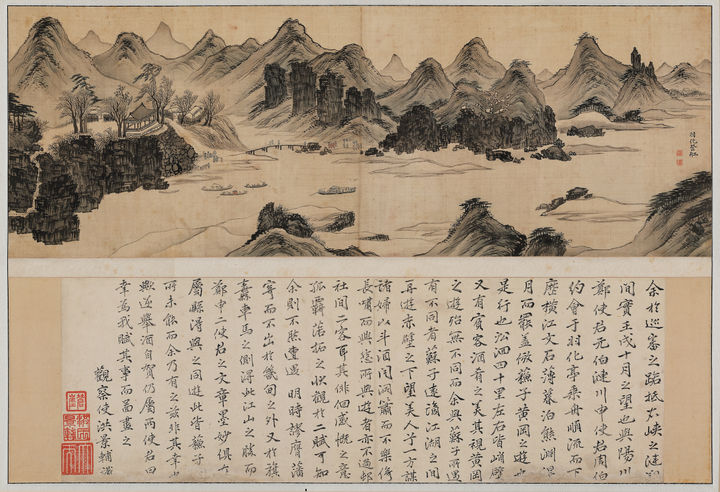 羽化登船
余於巡審之路抵右峽之漣
間實壬戌十月之望也與陽川
鄭使君元伯漣川申使君周伯
約會于羽化亭乘舟順流而下
歷橫江文石薄暮泊熊淵
月而罷盖倣蘇子黃岡之遊
是行也沿洄四十里左右皆峭壁
又有賓客酒肴之美其視黃岡
之遊殆無不同而余與蘇子所遇
有不同者蘇子遠謫江湖之間
再遊赤壁之下望美人于一方謀
諸婦以斗酒 蕭而不樂
長嘯而興悲所與遊者亦不過
社間二客耳其徘佪感慨之意
孤羈落拓之狀觀於二賦可知
余則不然重遇 明時謬膺藩
寄而不出於畿甸之外又於
車馬之側得此江山之勝而
鄭申二使君之文章墨妙俱
屬縣淸興之同遊此皆蘇子
所未能而余乃有之玆非其幸
歟遂擧酒自賀仍屬兩使君曰
幸爲我賦其事而畵之
觀察使洪景輔識